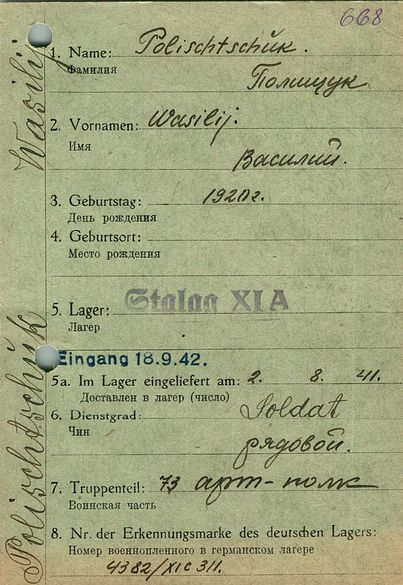 668
1. Name: Polischtschuk.
Фамилия
Полищук
2. Vornamen: Wasilij.
Имя
Василий.
3. Geburtstag: 1920г.
День рождения
4. Geburtsort:
Место рождения
Stalag XI A
5. Lager:
Лагерь
Eingang 18.9.42.
5a. Im Lager eingeliefert am: 2. 8. 41.
Доставлен в лагерь (число)
6. Dienstgrad: Soldat
Чин
рядовой.
7. Truppenteil: 73 арт-полк
Воинская часть
8. Nr. der Erkennungsmarke des deutschen Lagers:
Номер военнопленного в германском лагере
4382/XI C 311.
Polischtschuk Wasilij